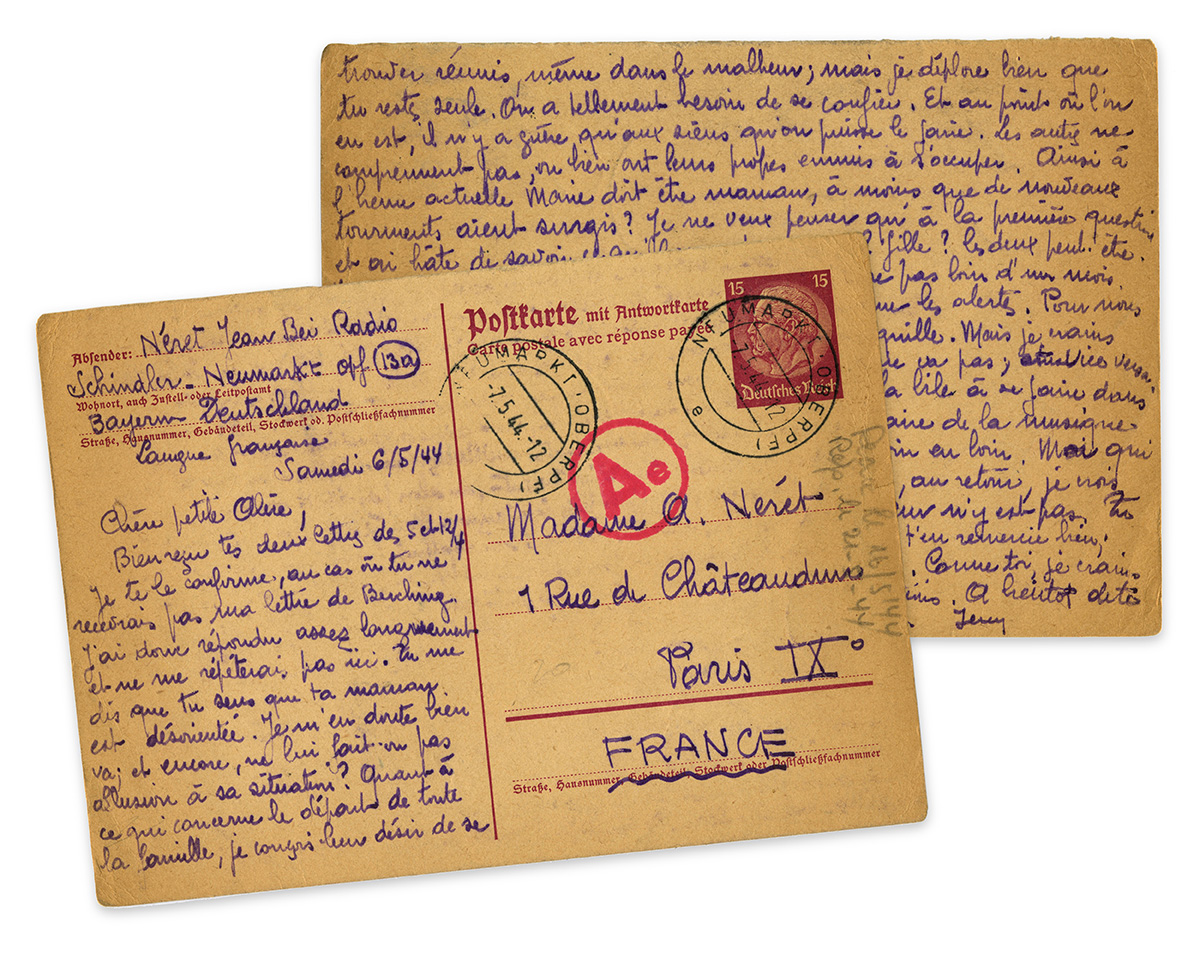 Postkarte mit Antwortkarte
Carte postale avec réponse payée
15 15
Deutsches Reich
NEUMARKT (OBERPF)
-7.5.44.-12
NEUMARKT (OBERPF)
e
Ae
Absender: Néret Jean Bei Radio
Schindler - Neumarkt opf 13a
Wohnort, auch Zustell- oder Leitpostamt
Bayern Deutschland
Straße, Hausnummer, Gebäudeteil, Stockwerk od. Postschließfachnummer
Langue française
Samedi 6/5/44
Chère petite
Bien reçu tes deux lettres des 5 et 12/4
Je te le confirme, au cas où tu ne
recevrais pas ma lettre de Berching.
J'ai donc répondu assez longuement
et ne me répèterais pas ici. Tu me
dis que tu sens que ta maman
est désorientée. Je m'en doute bien
va; et encore, ne lui fait-on pas
allusion à sa situation? Quant à
ce qui concerne le départ de toute
la famille, je conçois leur désir de se
Madame A. Néret
1 Rue de Châteaudun
Paris IX°
FRANCE
Straße, Hausnummer, Gebäudeteil, Stockwerk oder Postschließfachnummer
20
16/5/44
trouver réunis, même dans le malheur; mais je déplore bien que
tu restes seule. On a tellement besoin de se confier. Et au point où l'on
en est, il n'y a guère qu'aux siens qu'on puisse le faire. Les autres ne
comprennent pas, ou bien ont leurs propres ennuis à s'occuper. Ainsi à
l'heure actuelle Marie doit être maman, à moins que de nouveaux
tourments aient surgis? Je ne veux penser qu'à la première question
et ai hâte de savoir ? fille? les deux peut-être
pas loin d'un mois.
les alertes. Pour nous
Mais je crains
pas; vice versa.
à se faire dans
de la musique
en loin. Moi qui
, au retour, je
n'y est pas. Tu
t'en remercie bien,
Comme toi, je crains
A bientôt de tes